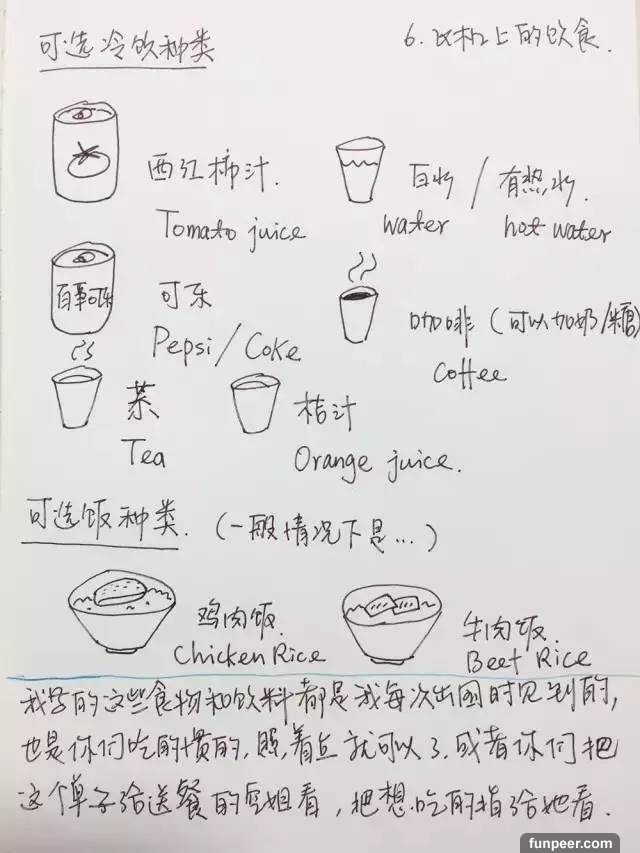 可选冷饮种类
6. 飞机上的饮食.
西红柿汁.
Tomato juice
白水 / 有热水.
water hot water
百事可乐
可乐
Pepsi/Coke
咖啡 (可以加奶/糖)
Coffee
茶
Tea
桔汁
Orange juice.
可选饭种类. (一般情况下是...)
鸡肉饭.
Chicken Rice
牛肉饭.
Beef Rice
我写的这些食物和饮料都是我每次出国时见到的,
也是你们吃的惯的,照着点就可以了.或者你们把
这个单子给送餐的空姐看,把想吃的指给她看.
funpeer.com